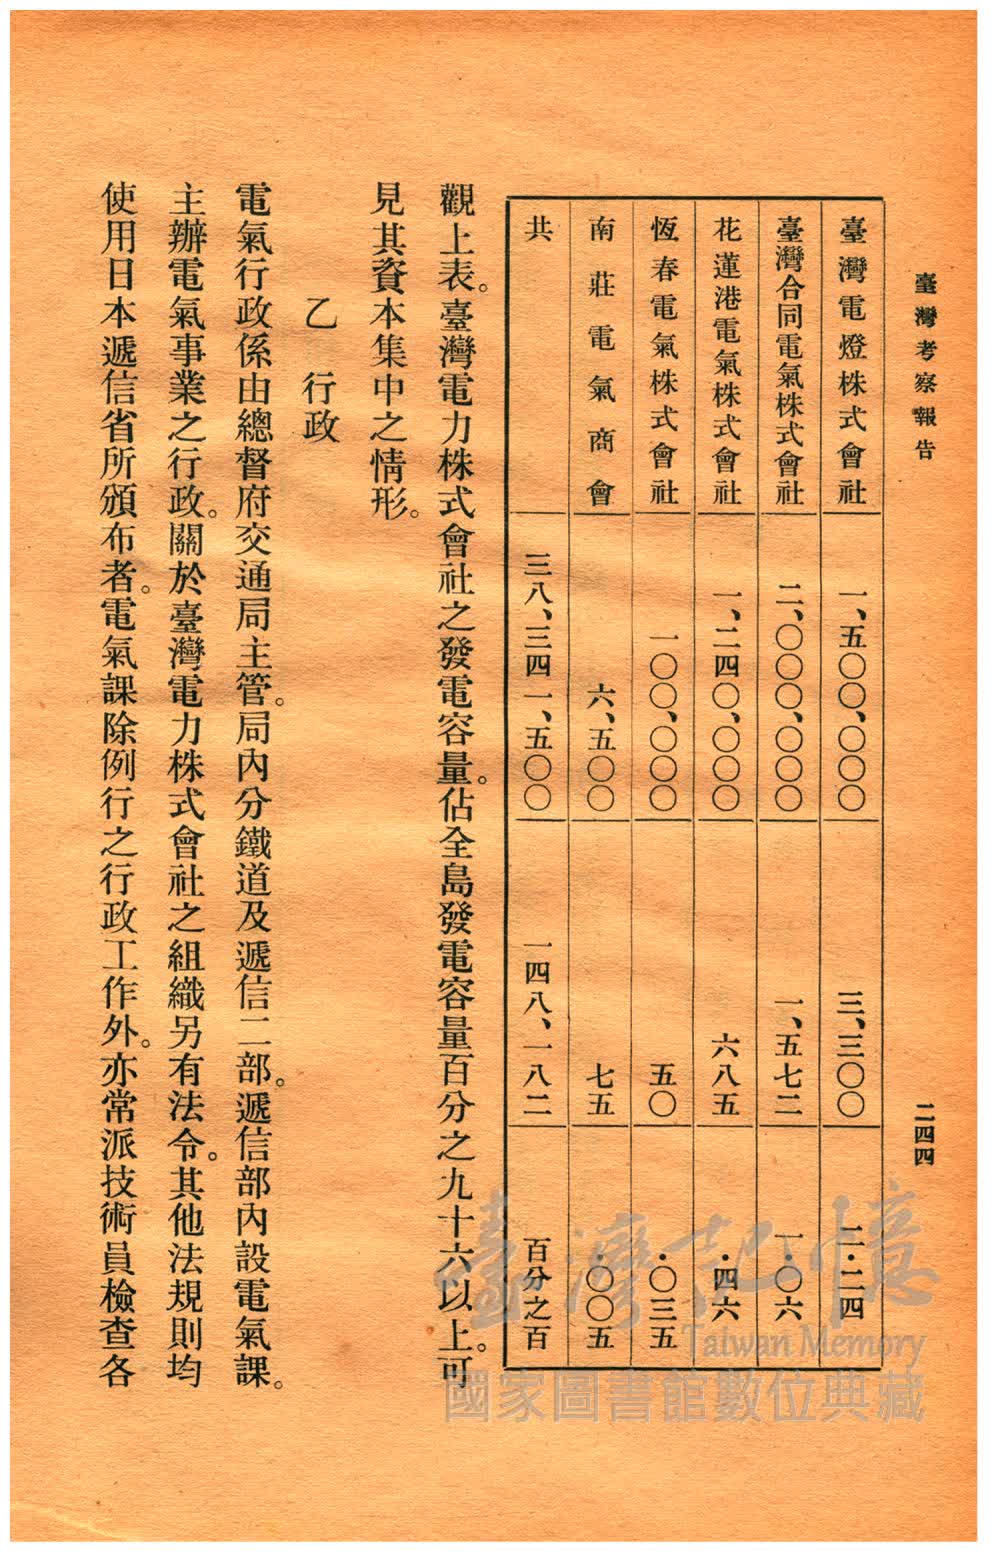 臺灣考察報告
二四四
臺灣電燈株式會社 一、五〇〇、〇〇〇 三、三〇〇 二・二四
臺灣合同電氣株式會社 二、〇〇〇、〇〇〇 一、五七二 一・〇六
花蓮港電氣株式會社 一、二四〇、〇〇〇 六八五 ・四六
恆春電氣株式會社 一〇〇、〇〇〇 五〇 ・〇三五
南莊電氣商會 六、五〇〇 七五 ・〇〇五
共 三八、三四一、五〇〇 一四八、一八二 百分之百
觀上表。臺灣電力株式會社之發電容量。佔全島發電容量百分之九十六以上。可
見其資本集中之情形。
乙 行政
電氣行政係由總督府交通局主管。局內分鐵道及遞信二部。遞信部內設電氣課。
主辦電氣事業之行政。關於臺灣電力株式會社之組織另有法令。其他法規則均
使用日本遞信省所頒布者。電氣課除例行之行政工作外。亦常派技術員檢查各
臺灣記憶
Taiwan Memory
國家圖書館數位典藏